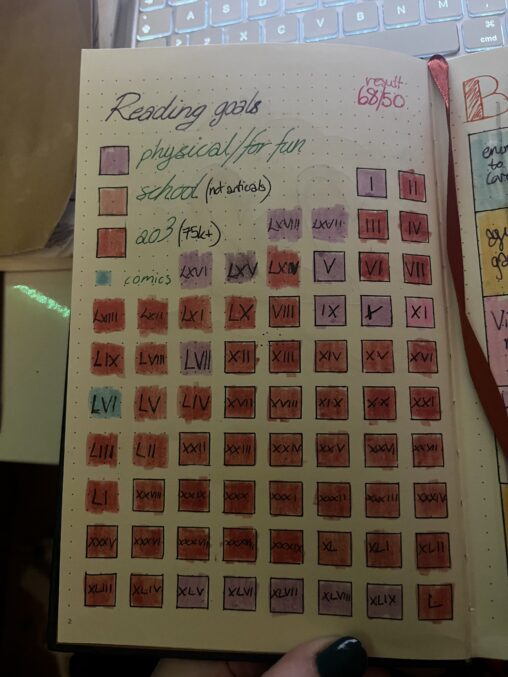 A S D F G H J K L
Z X C V B N M
cmd
result
68/50
Reading goals
physical/for fun
school (not articals)
I II
ao3 (75k+)
LXVIII LXVII III IV
comics
LXVI LXV LXIV V VI VII
LXIII LXII LXI LX VIII IX X XI
LIX LVIII LVII XII XIII XIV XV XVI
LVI LV LIV XVII XVIII XIX XX XXI
LIII LII XXII XXIII XXIV XXV XXVI XXVII
LI XXVIII XXIX XXX XXXI XXXII XXXIII XXXIV
XXXV XXXVI XXXVII XXXVIII XXXIX XL XLI XLII
XLIII XLIV XLV XLVI XLVII XLVIII XLIX L
2
B
to